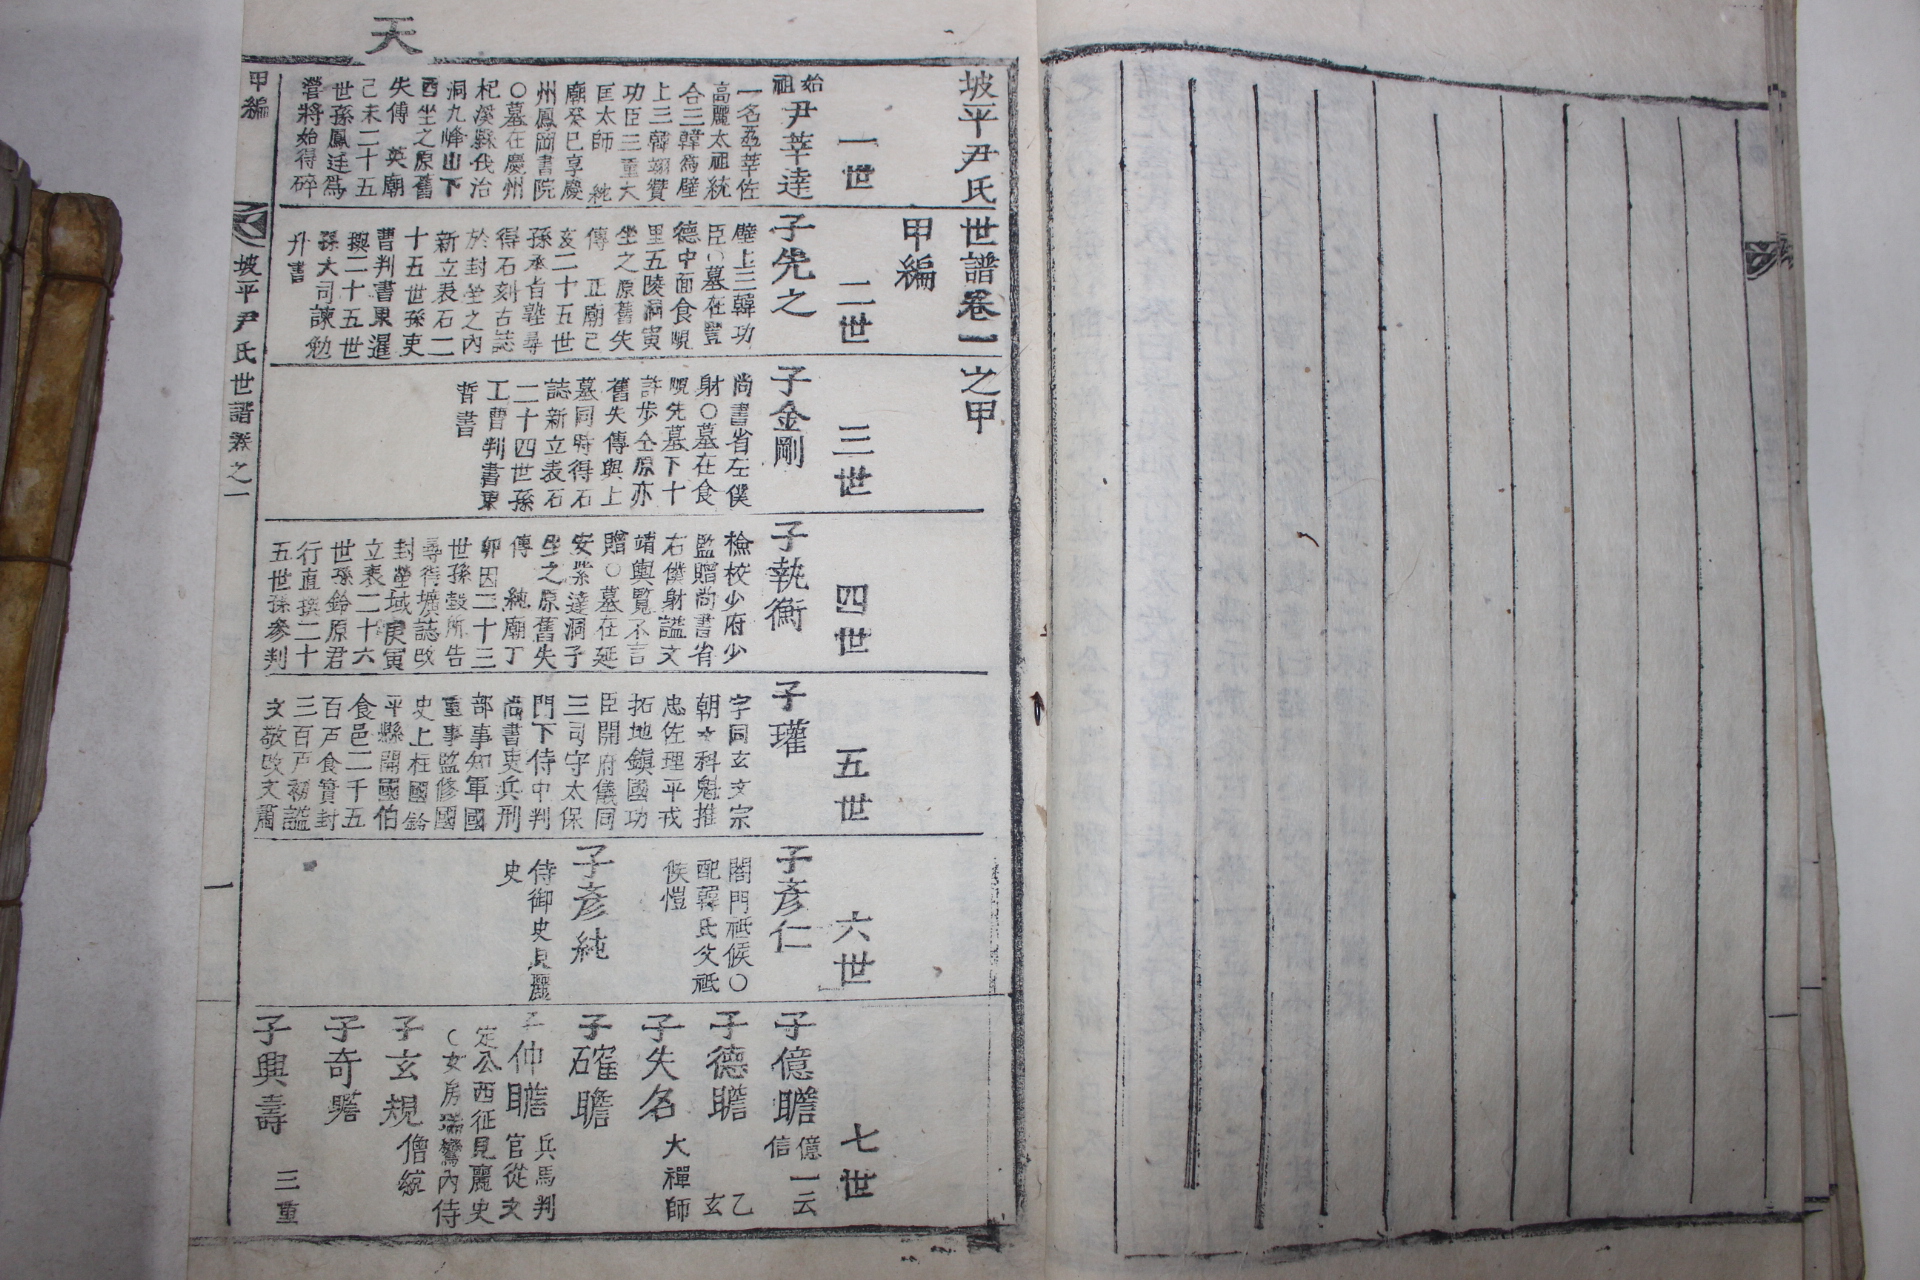 天
坡平尹氏世譜卷一之甲
甲編
一世
始祖尹莘達
一名莘佐
高麗太祖統
合三韓爲壁
上三韓翊贊
功臣三重大
匡太師 純
廟癸巳享慶
州鳳岡書院
○墓在慶州
杞溪縣伐治
洞九峰山下
酉坐之原舊
失傳 英廟
己未二十五
世孫鳳廷爲
營將始得碎
二世
子先之
壁上三韓功
臣○墓在豐
德中面食峴
里五陵洞寅
坐之原舊失
傳 正廟己
亥二十五世
孫承旨塾尋
得石刻古誌
於封塋之內
新立表石二
十五世孫吏
曹判書東暹
撰二十五世
孫大司諫勉
升書
三世
子金剛
尚書省左僕
射○墓在食
峴先墓下十
許步仝原亦
舊失傳與上
墓同時得石
誌新立表石
二十四世孫
工曹判書東
晢書
四世
子執衡
檢校少府少
監贈尚書省
右僕射謚文
靖輿覽不言
贈○墓在延
安紫達洞子
坐之原舊失
傳 純廟丁
卯因二十三
世孫㲄所告
尋得壙誌改
封塋域庚寅
立表二十六
世孫鈴原君
行直撰二十
五世孫參判
五世
子瓘
字同玄文宗
朝文科魁推
忠佐理平戎
拓地鎭國功
臣開府儀同
三司守太保
門下侍中判
尚書吏兵刑
部事知軍國
重事監修國
史上柱國鈴
平縣開國伯
食邑二千五
百戶食實封
三百戶初謚
文敬改文肅
六世
子彥仁
閤門祗候○
配韓氏父祗
候愷
子彥純
侍御史見麗
史
七世
子億瞻 億一云信
子德瞻 乙玄
子失名 大禪師
子確瞻
子仲瞻 兵馬判
官從文
定公西征見麗史
女房瑞鸞內侍
子玄規 僧統
子奇瞻
子興壽 三重
甲編
坡平尹氏世譜卷之一
一